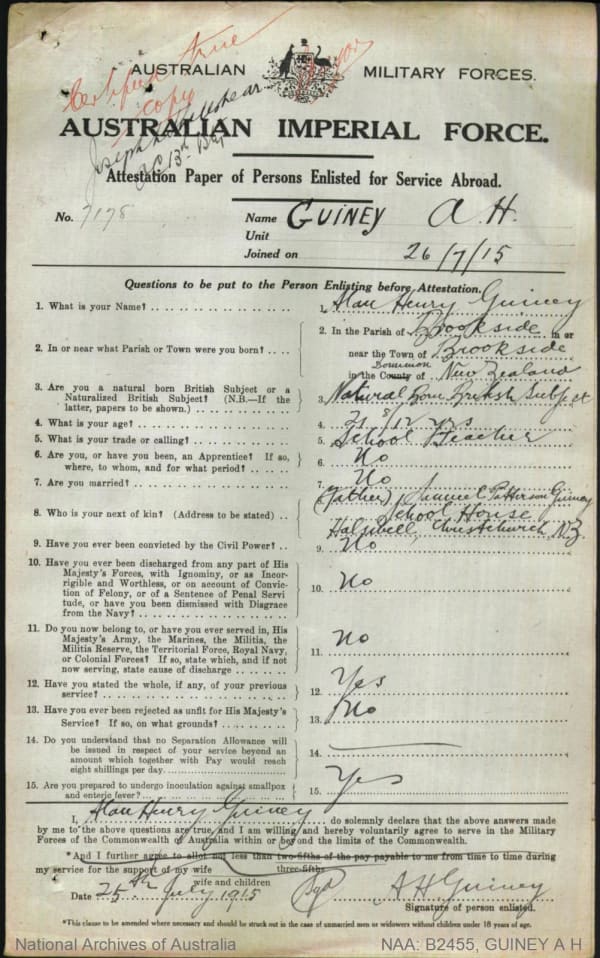 Certified true
copy
AUSTRALIAN MILITARY FORCES.
AUSTRALIAN IMPERIAL FORCE.
Joseph
OC 13th
Attestation Paper of Persons Enlisted for Service Abroad.
No. 7178 Name GUINEY A. H.
Unit
Joined on 26/7/15
Questions to be put to the Person Enlisting before Attestation.
1. What is your Name? 1. Alan Henry Guiney
2. In or near what Parish or Town were you born? 2. In the Parish of Brookside in or
near the Town of Brookside
in the County of Dominion New Zealand
3. Are you a natural born British Subject or a
Naturalized British Subject? (N.B.—If the
latter, papers to be shown.) 3. Natural Born British Subject
4. What is your age? 4. 21 8/12 yrs
5. What is your trade or calling? 5. School Teacher
6. Are you, or have you been, an Apprentice? If so,
where, to whom, and for what period? 6. No
7. Are you married? 7. No
8. Who is your next of kin? (Address to be stated) (Father) Samuel Patterson Guiney
School House
Halswell Christchurch N.Z.
9. Have you ever been convicted by the Civil Power? 9. No
10. Have you ever been discharged from any part of His
Majesty's Forces, with Ignominy, or as Incor-
rigible and Worthless, or on account of Convic-
tion of Felony, or of a Sentence of Penal Servi
tude, or have you been dismissed with Disgrace
from the Navy? 10. No
11. Do you now belong to, or have you ever served in, His
Majesty's Army, the Marines, the Militia, the
Militia Reserve, the Territorial Force, Royal Navy,
or Colonial Forces? If so, state which, and if not
now serving, state cause of discharge 11. No
12. Have you stated the whole, if any, of your previous
service? 12. Yes
13. Have you ever been rejected as unfit for His Majesty's
Service? If so, on what grounds? 13. No
14. Do you understand that no Separation Allowance will
be issued in respect of your service beyond an
amount which together with Pay would reach
eight shillings per day. 14.
15. Are you prepared to undergo inoculation against smallpox
and enteric fever? 15. Yes
I, Alan Henry Guiney do solemnly declare that the above answers made
by me to the above questions are true, and I am willing and hereby voluntarily agree to serve in the Military
Forces of the Commonwealth of Australia within or beyond the limits of the Commonwealth.
*And I further agree to allot not less than two-fifths of the pay payable to me from time to time during
my service for the support of my wife three-fifths
wife and children
Date 25th July 1915 Sgd A H Guiney
Signature of person enlisted.
*This clause to be amended where necessary and should be struck out in the case of unmarried men or widowers without children under 18 years of age.
National Archives of Australia NAA: B2455, GUINEY A H